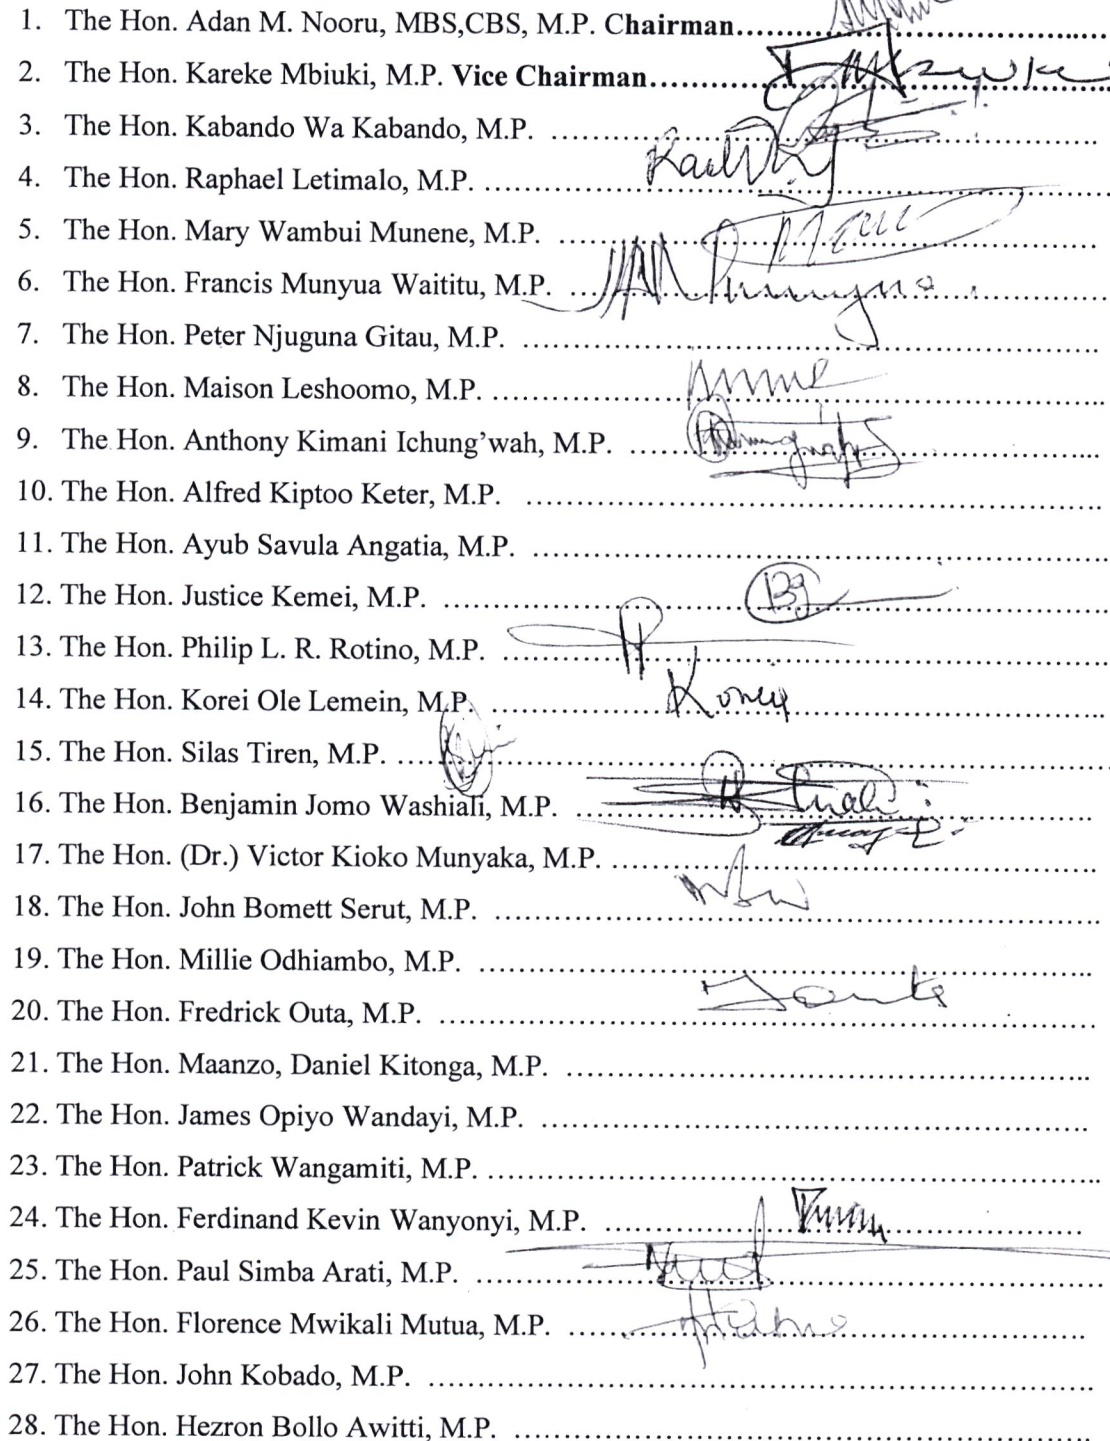 1. The Hon. Adan M. Nooru, MBS,CBS, M.P. Chairman
2. The Hon. Kareke Mbiuki, M.P. Vice Chairman
3. The Hon. Kabando Wa Kabando, M.P.
4. The Hon. Raphael Letimalo, M.P.
5. The Hon. Mary Wambui Munene, M.P.
6. The Hon. Francis Munyua Waititu, M.P.
7. The Hon. Peter Njuguna Gitau, M.P.
8. The Hon. Maison Leshoomo, M.P.
9. The Hon. Anthony Kimani Ichung'wah, M.P.
10. The Hon. Alfred Kiptoo Keter, M.P.
11. The Hon. Ayub Savula Angatia, M.P.
12. The Hon. Justice Kemei, M.P.
13. The Hon. Philip L. R. Rotino, M.P.
14. The Hon. Korei Ole Lemein, M.P.
15. The Hon. Silas Tiren, M.P.
16. The Hon. Benjamin Jomo Washiali, M.P.
17. The Hon. (Dr.) Victor Kioko Munyaka, M.P.
18. The Hon. John Bomett Serut, M.P.
19. The Hon. Millie Odhiambo, M.P.
20. The Hon. Fredrick Outa, M.P.
21. The Hon. Maanzo, Daniel Kitonga, M.P.
22. The Hon. James Opiyo Wandayi, M.P.
23. The Hon. Patrick Wangamiti, M.P.
24. The Hon. Ferdinand Kevin Wanyonyi, M.P.
25. The Hon. Paul Simba Arati, M.P.
26. The Hon. Florence Mwikali Mutua, M.P.
27. The Hon. John Kobado, M.P.
28. The Hon. Hezron Bollo Awitti, M.P.